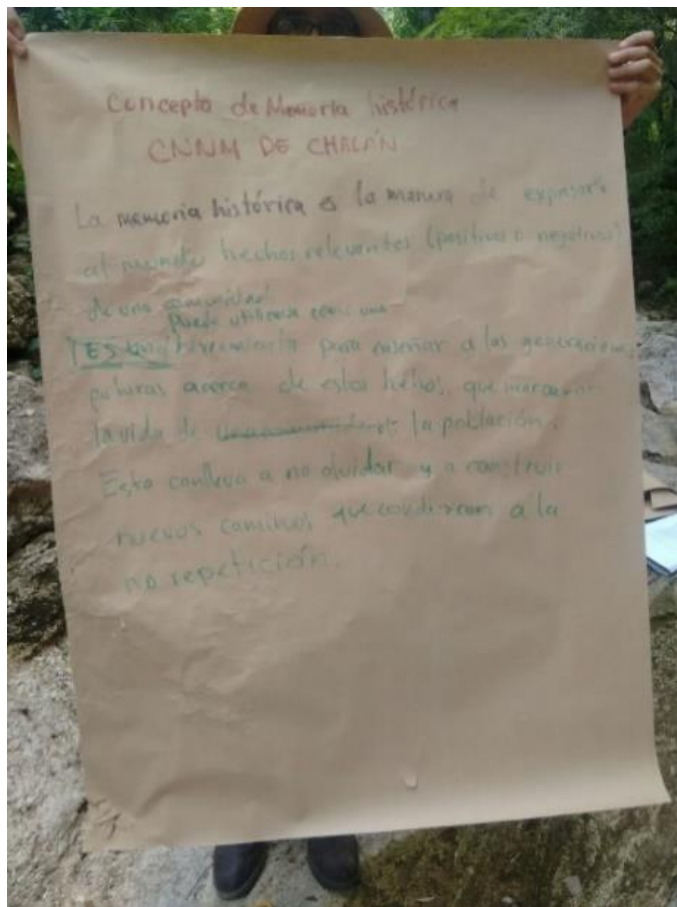 Concepto de Memoria histórica
CNNM DE CHALÁN
La memoria histórica es la manera de expresar
al mundo hechos relevantes (positivos o negativos)
de una comunidad
puede utilizarse como una
ES una herramienta para enseñar a las generaciones
futuras acerca de estos hechos, que marcaron
la vida de la población.
Esto conlleva a no olvidar y a construir
nuevos caminos que conduzcan a la
no repetición.